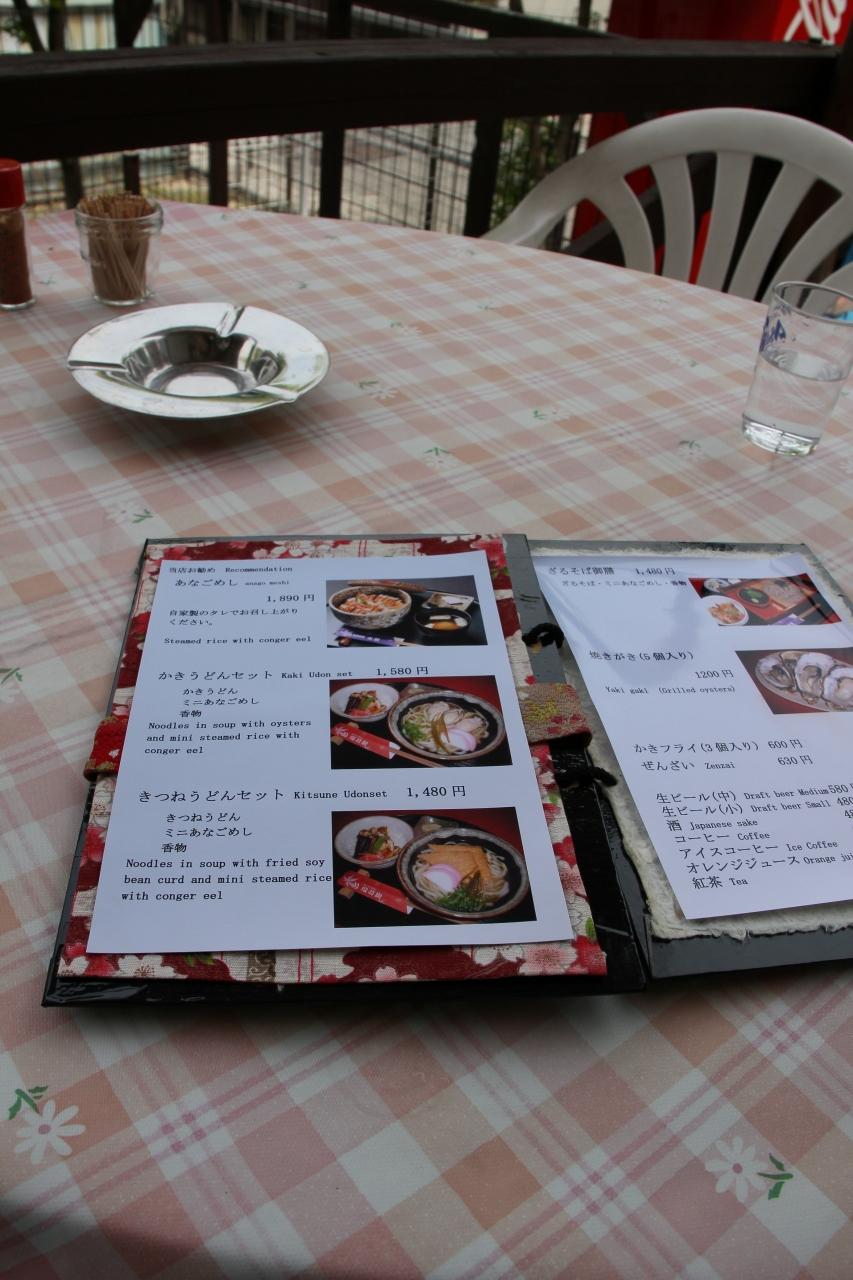 当店お勧め Recommendation
あなごめし anago meshi
1,890 円
自家製のタレでお召し上がり
ください。
Steamed rice with conger eel
かきうどんセット Kaki Udon set 1,580 円
かきうどん
ミニあなごめし
香物
Noodles in soup with oysters
and mini steamed rice with
conger eel
きつねうどんセット Kitsune Udonset 1,480 円
きつねうどん
ミニあなごめし
香物
Noodles in soup with fried soy
bean curd and mini steamed rice
with conger eel
ざるそば御膳 1,480 円
ざるそば・ミニあなごめし・香物
焼きがき(5個入り)
1200 円
Yaki gaki (Grilled oysters)
かきフライ(3個入り) 600 円
ぜんざい Zenzai 630 円
生ビール(中) Draft beer Medium 580
生ビール(小) Draft beer Small 480
酒 Japanese sake
コーヒー Coffee
アイスコーヒー Ice Coffee
オレンジジュース Orange
紅茶 Tea